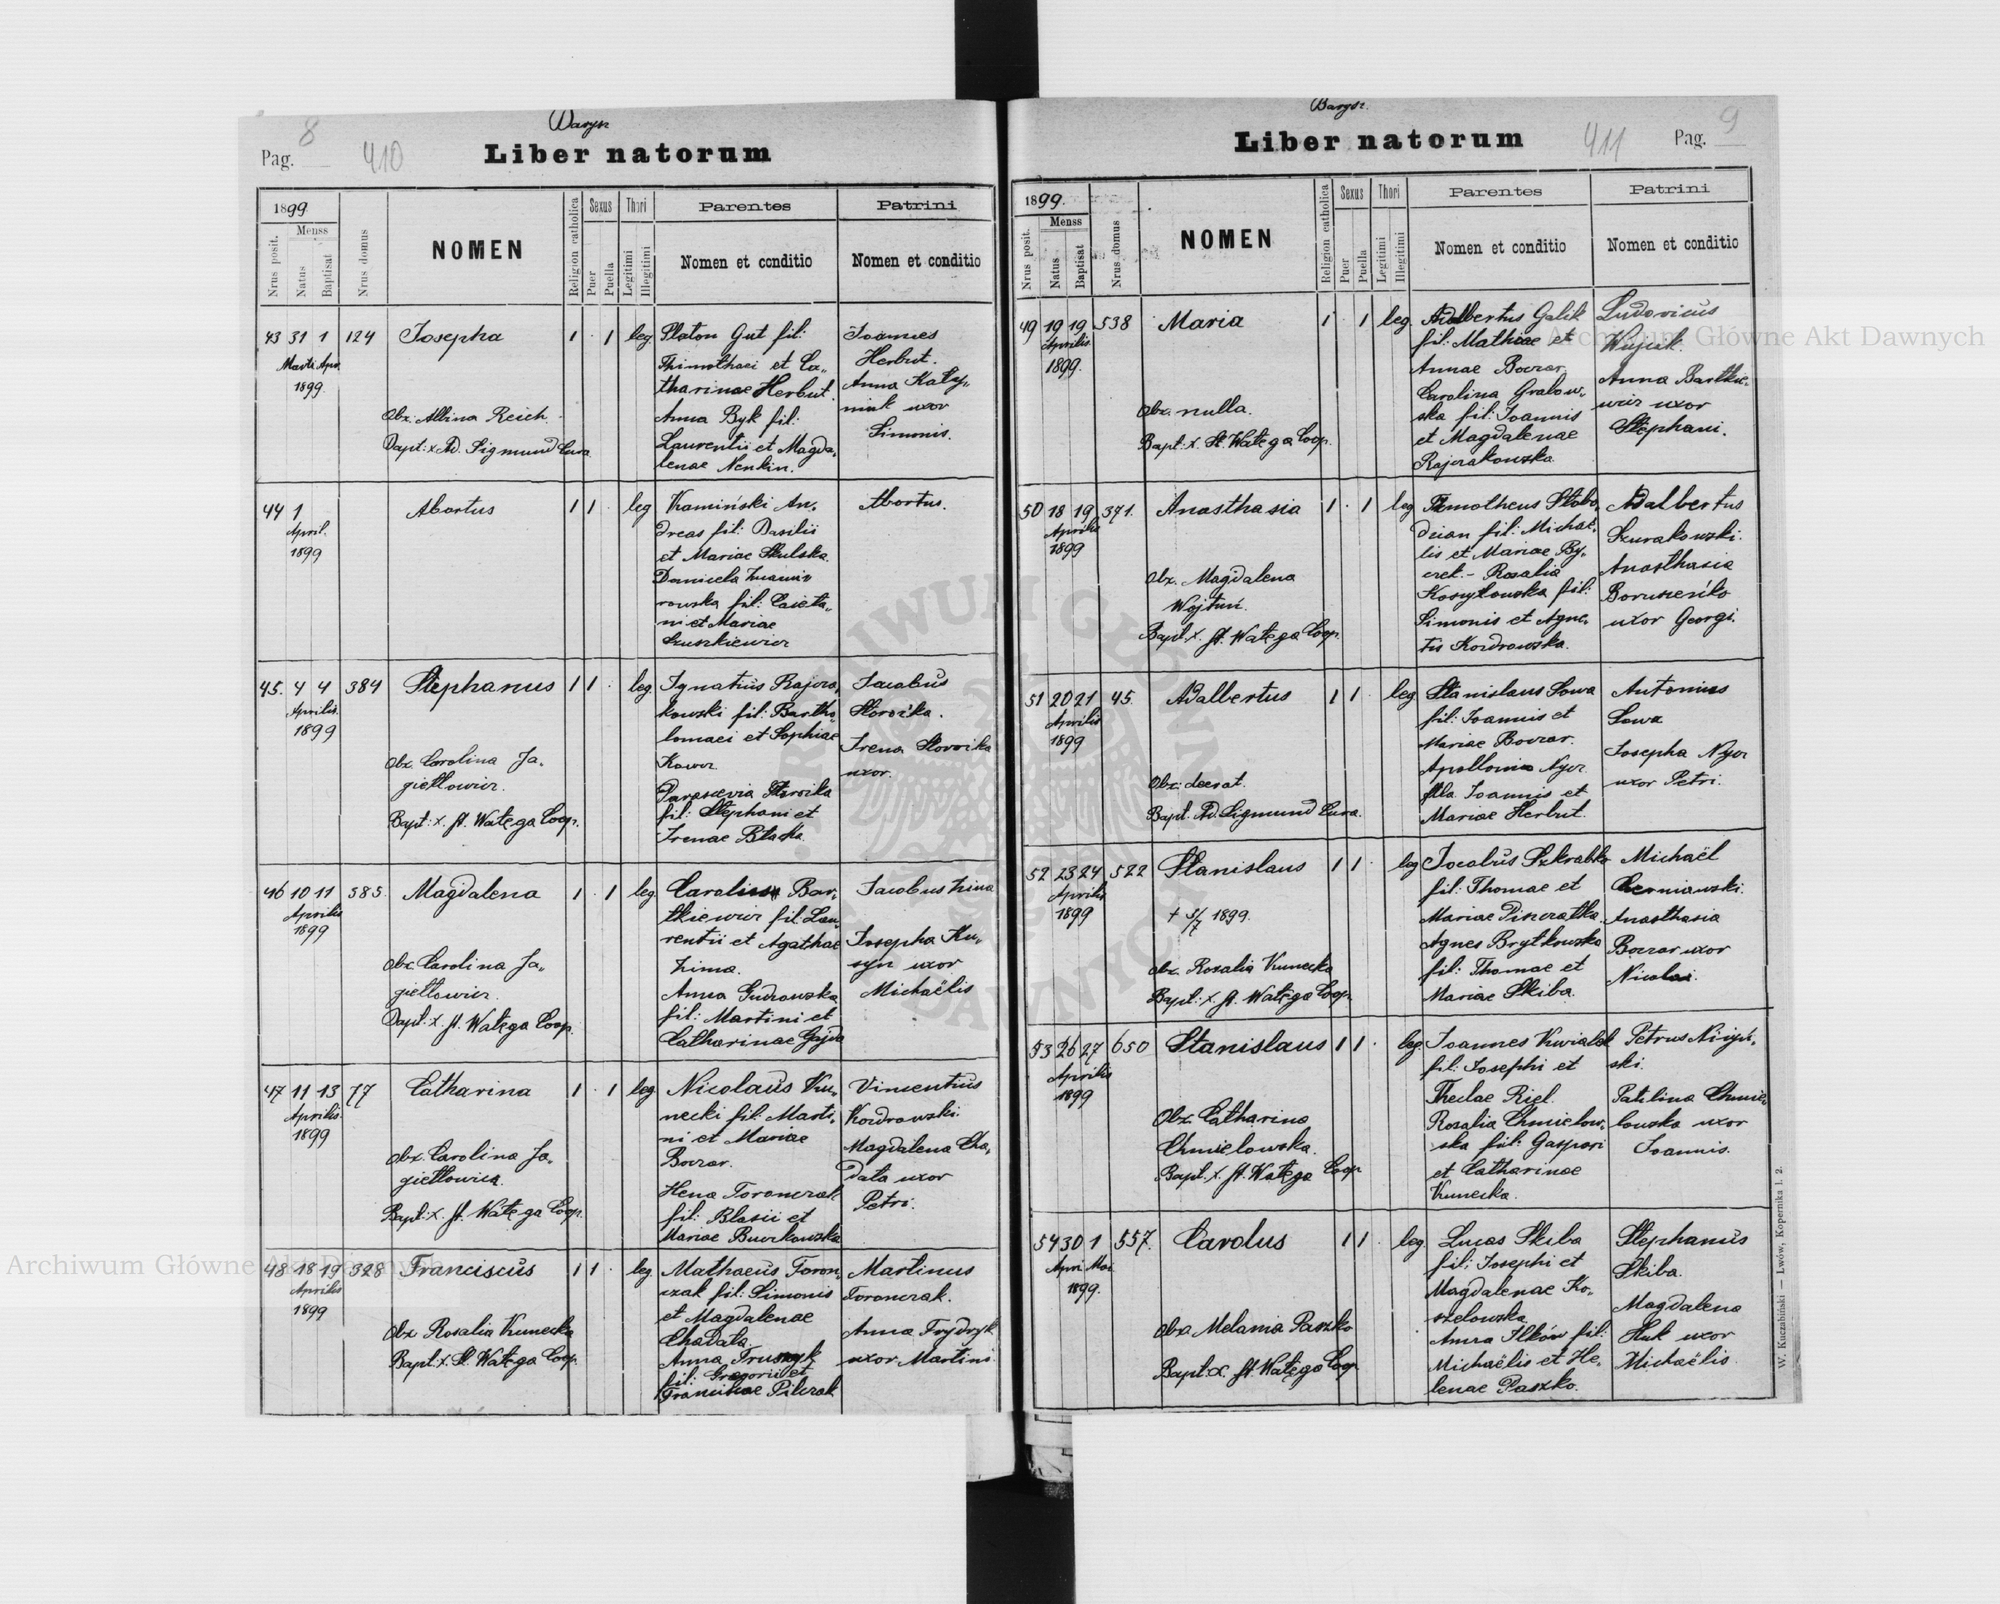 Pag. 8
410
Liber natorum
1899
Nrus posit.
Menss
Natus
Baptisat
Nrus domus
NOMEN
Religion catholica
Sexus
Puer
Puella
Thori
Legitimi
Illegitimi
Parentes
Nomen et conditio
Patrini
Nomen et conditio
43 31 1 124 Josepha 1 1 leg.
Martii Apr.
1899.
Obx. Albina Reich.
Bapt: x. Ad. Sigmund Cura
Platon Gut fil:
Thimothaei et Ca„
tharinae Herbut.
Anna Byk fil:
Laurentii et Magda„
lenae Nenkin.
Joannes
Herbut.
Anna Katy„
niuk uxor
Simonis.
44 1 Abortus 1 1 leg
April.
1899
Kamiński An„
dreas fil: Basilii
et Mariae Skulska.
rowska fil: Caieta„
ni et Mariae
Łuszkiewicz
Abortus.
45. 4 4 384 Stephanus 1 1 leg.
Aprilis
1899
Obx. Carolina Ja„
giełłowicz.
Bapt: x. St. Watęga Coop.
Ignatius Rajcza„
kowski fil: Bartho„
lomaei et Sophiae
fil: Stephani et
Irenae
Jacobus
Irena
uxor.
46 10 11 585 Magdalena 1 1 leg.
Aprilis
1899
Obx. Carolina Ja„
giełłowicz.
Bapt: x. St. Watęga Coop.
Bar„
tkiewicz fil: Lau„
rentii et Agathae
Zima.
Anna Gudrowska
fil: Martini et
Catharinae Gajda
Jacobus Zima
Josepha Ku„
uxor
Michaëlis
47 11 13 77 Catharina 1 1 leg
Aprilis
1899
Obx. Carolina Ja„
giełłowicz.
Bapt: x. St. Watęga Coop.
Nicolaus Ku„
necki fil: Marti„
ni et Mariae
Boczar.
Toronczak
fil: Blasii et
Mariae Burkowska
Vincentius
Kozdrowski.
Magdalena Cha„
data uxor
Petri.
48 18 19 328 Franciscus 1 1 leg.
Aprilis
1899
Obx. Rosalia Kunecka
Bapt: x. St. Watęga Coop.
Mathaeus Toron„
czak fil: Simonis
et Magdalenae
Chadata.
Anna
fil: Gregorii et
Pilczak
Martinus
Toronczak.
Anna Frydryk
uxor Martini
Pag. 9
411
Liber natorum
1899.
Nrus posit.
Menss
Natus
Baptisat
Nrus domus
NOMEN
Religion catholica
Sexus
Puer
Puella
Thori
Legitimi
Illegitimi
Parentes
Nomen et conditio
Patrini
Nomen et conditio
49 19 19 538 Maria 1 1 leg.
Aprilis
1899.
Obx. nulla.
Bapt: x. St. Watęga Coop.
Adalbertus Galik
fil: Mathiae et
Annae Boczar.
Carolina Grabow„
ska fil: Joannis
et Magdalenae
Rajczakowska
Ludovicus
Wujcik.
Anna Bartkie„
wicz uxor
Stephani.
50 18 19 371. Anasthasia 1 1 leg
Aprilis
1899
Obx. Magdalena
Bapt. x. St. Watęga Coop.
Timotheus Słobo„
dzian fil: Michaë„
lis et Mariae By„
czek. - Rosalia
fil:
Simonis et Agne„
tis Kozdrowska.
Adalbertus
Szurakowski.
Anasthasia
uxor Georgi.
51 20 21 45. Adalbertus 1 1 leg
Aprilis
1899
Obx: deerat.
Bapt. Ad. Sigmund Cura.
Stanislaus Sowa
fil: Joannis et
Mariae Boczar.
Apollonia Nycz
filia Joannis et
Mariae Herbut.
Antonius
Sowa
Josepha Nycz
uxor Petri.
52 23 24 522 Stanislaus 1 1 leg
Aprilis
1899
+ 5/7 1899.
Obx. Rosalia Kunecka
Bapt: x. St. Watęga Coop
Jacobus Szkrabko
fil: Thomae et
Mariae
Agnes Brytkowska
fil: Thomae et
Mariae Skiba.
Michaël
Czerniawski.
Anasthasia
Boczar uxor
Nicolai.
53 26 27 650 Stanislaus 1 1 leg.
Aprilis
1899
Obx. Catharina
Chmielowska.
Bapt. x. St. Watęga Coop
Joannes
fil: Josephi et
Theclae Riel.
Rosalia Chmielow„
ska fil: Gaspari
et Catharinae
Kunecka.
Petrus
ski.
Paulina Chmie„
lowska uxor
Joannis.
54 30 1 557. Carolus 1 1 leg.
April Mai
1899.
Obx. Melania Paszko
Bapt: x. St. Watęga Coop
Lucas Skiba
fil: Josephi et
Magdalenae Ko„
szelowska
Anna Ilków fil:
Michaëlis et He„
lenae Paszko.
Stephanus
Skiba.
Magdalena
Huk uxor
Michaëlis.
W. Kuczabiński — Lwów, Kopernika l. 2.
Archiwum Główne Akt Dawnych
Archiwum Główne Akt Dawnych
ARCHIWUM GŁÓWNE AKT DAWNYCH